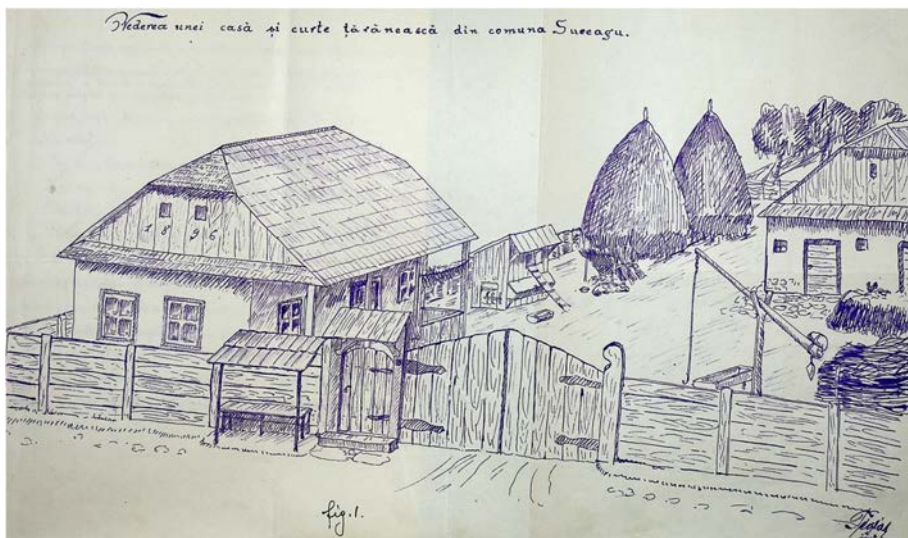 Vederea unei casă și curte țărănească din comuna Suceagu.
1896
fig. 1.